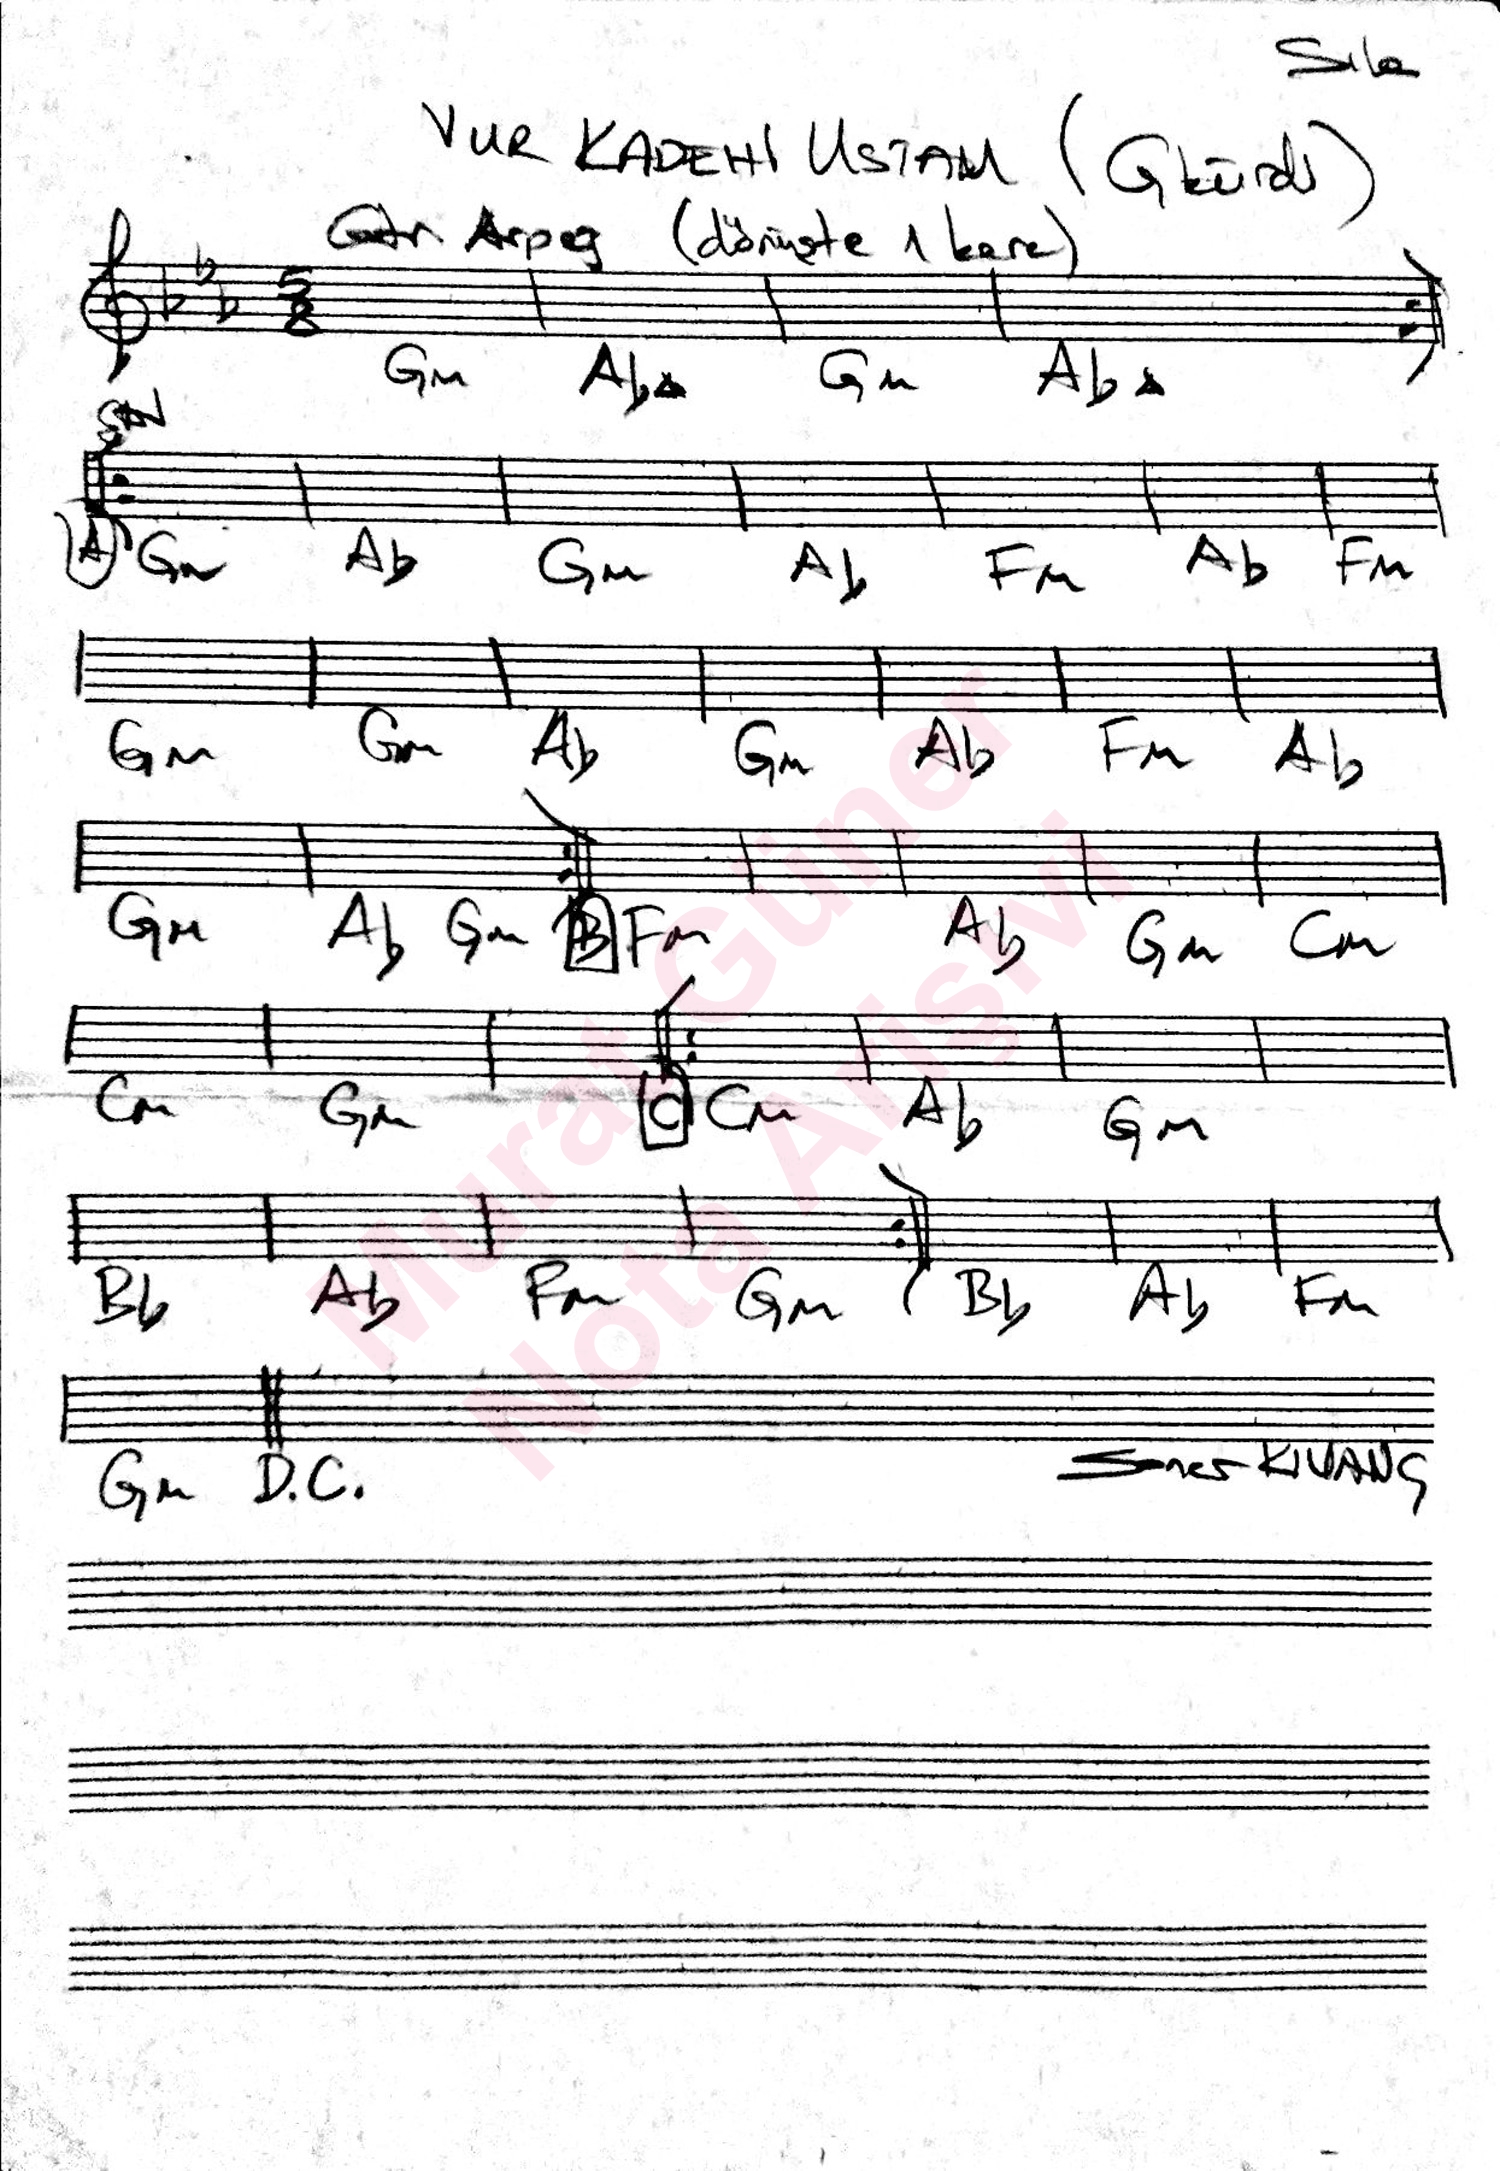 Sıla
VUR KADEHİ USTAM (G kürdi)
Gtr Arpeg (dönüşte 1 kere)
5
8
Gm Ab▵ Gm Ab▵
ŞAN
A Gm Ab Gm Ab Fm Ab Fm
Gm Gm Ab Gm Ab Fm Ab
Gm Ab Gm B Fm Ab Gm Cm
Cm Gm C Cm Ab Gm
Bb Ab Fm Gm Bb Ab Fm
Gm D.C. Soner KIVANÇ
Murat Güner
Nota Arişivi